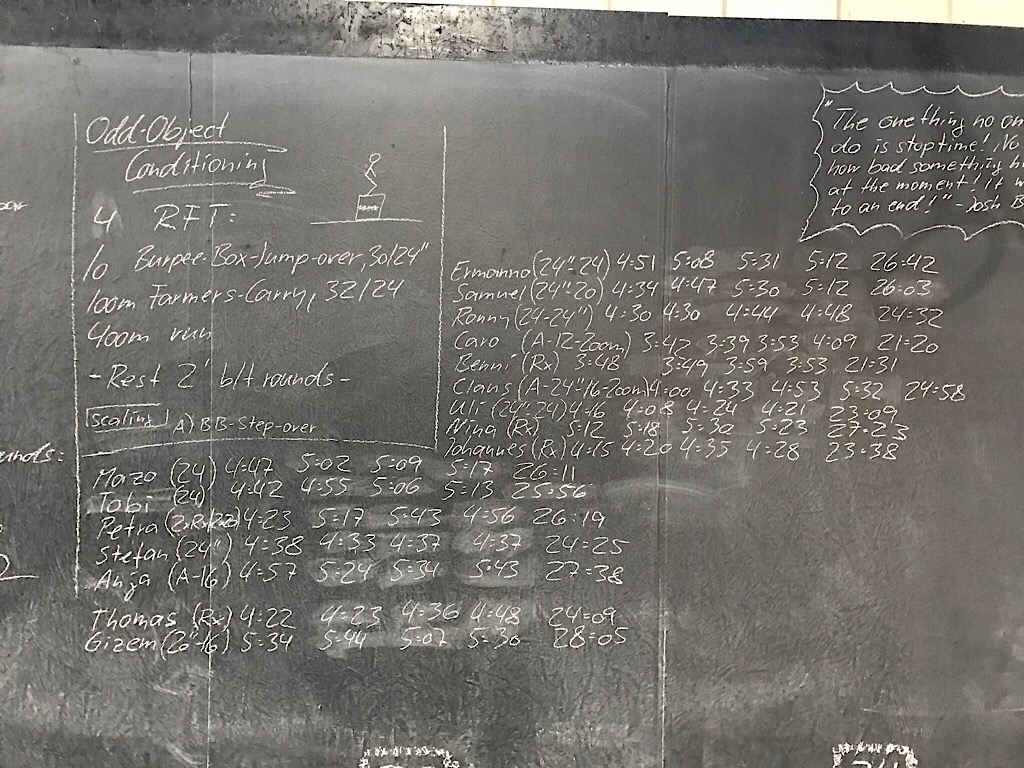 Odd-Object
Conditioning
4 RFT:
10 Burpee-Box-Jump-over, 30/24"
100m Farmers-Carry, 32/24
400m run
- Rest 2' b/t rounds -
Scaling A) BB-Step-over
Mazo (24) 4:47 5:02 5:09 5:17 26:11
Tobi (24) 4:42 4:55 5:06 5:13 25:56
Petra 4:23 5:17 5:43 4:56 26:19
Stefan (24") 4:38 4:33 4:37 4:37 24:25
Anja (A-16) 4:57 5:24 5:34 5:43 27:38
Thomas (Rx) 4:22 4:23 4:36 4:48 24:09
Gizem (20"-16) 5:34 5:44 5:07 5:30 28:05
Ermanno (24"-24) 4:51 5:08 5:31 5:12 26:42
Samuel (24"-20) 4:34 4:47 5:30 5:12 26:03
Ronny (24-24") 4:30 4:30 4:44 4:48 24:32
Caro (A-12-200m) 3:42 3:39 3:53 4:09 21:20
Benni (Rx) 3:48 3:49 3:59 3:53 21:31
Claus (A-24"-16-200m) 4:00 4:33 4:53 5:32 24:58
Uli (24"-24) 4:16 4:08 4:24 4:21 23:09
Nina (Rx) 5:12 5:18 5:30 5:23 27:23
Johannes (Rx) 4:15 4:20 4:35 4:28 23:38
"The one thing no on
do is stop time! No
how bad something
at the moment! it w
to an end!" - Josh B
unds: